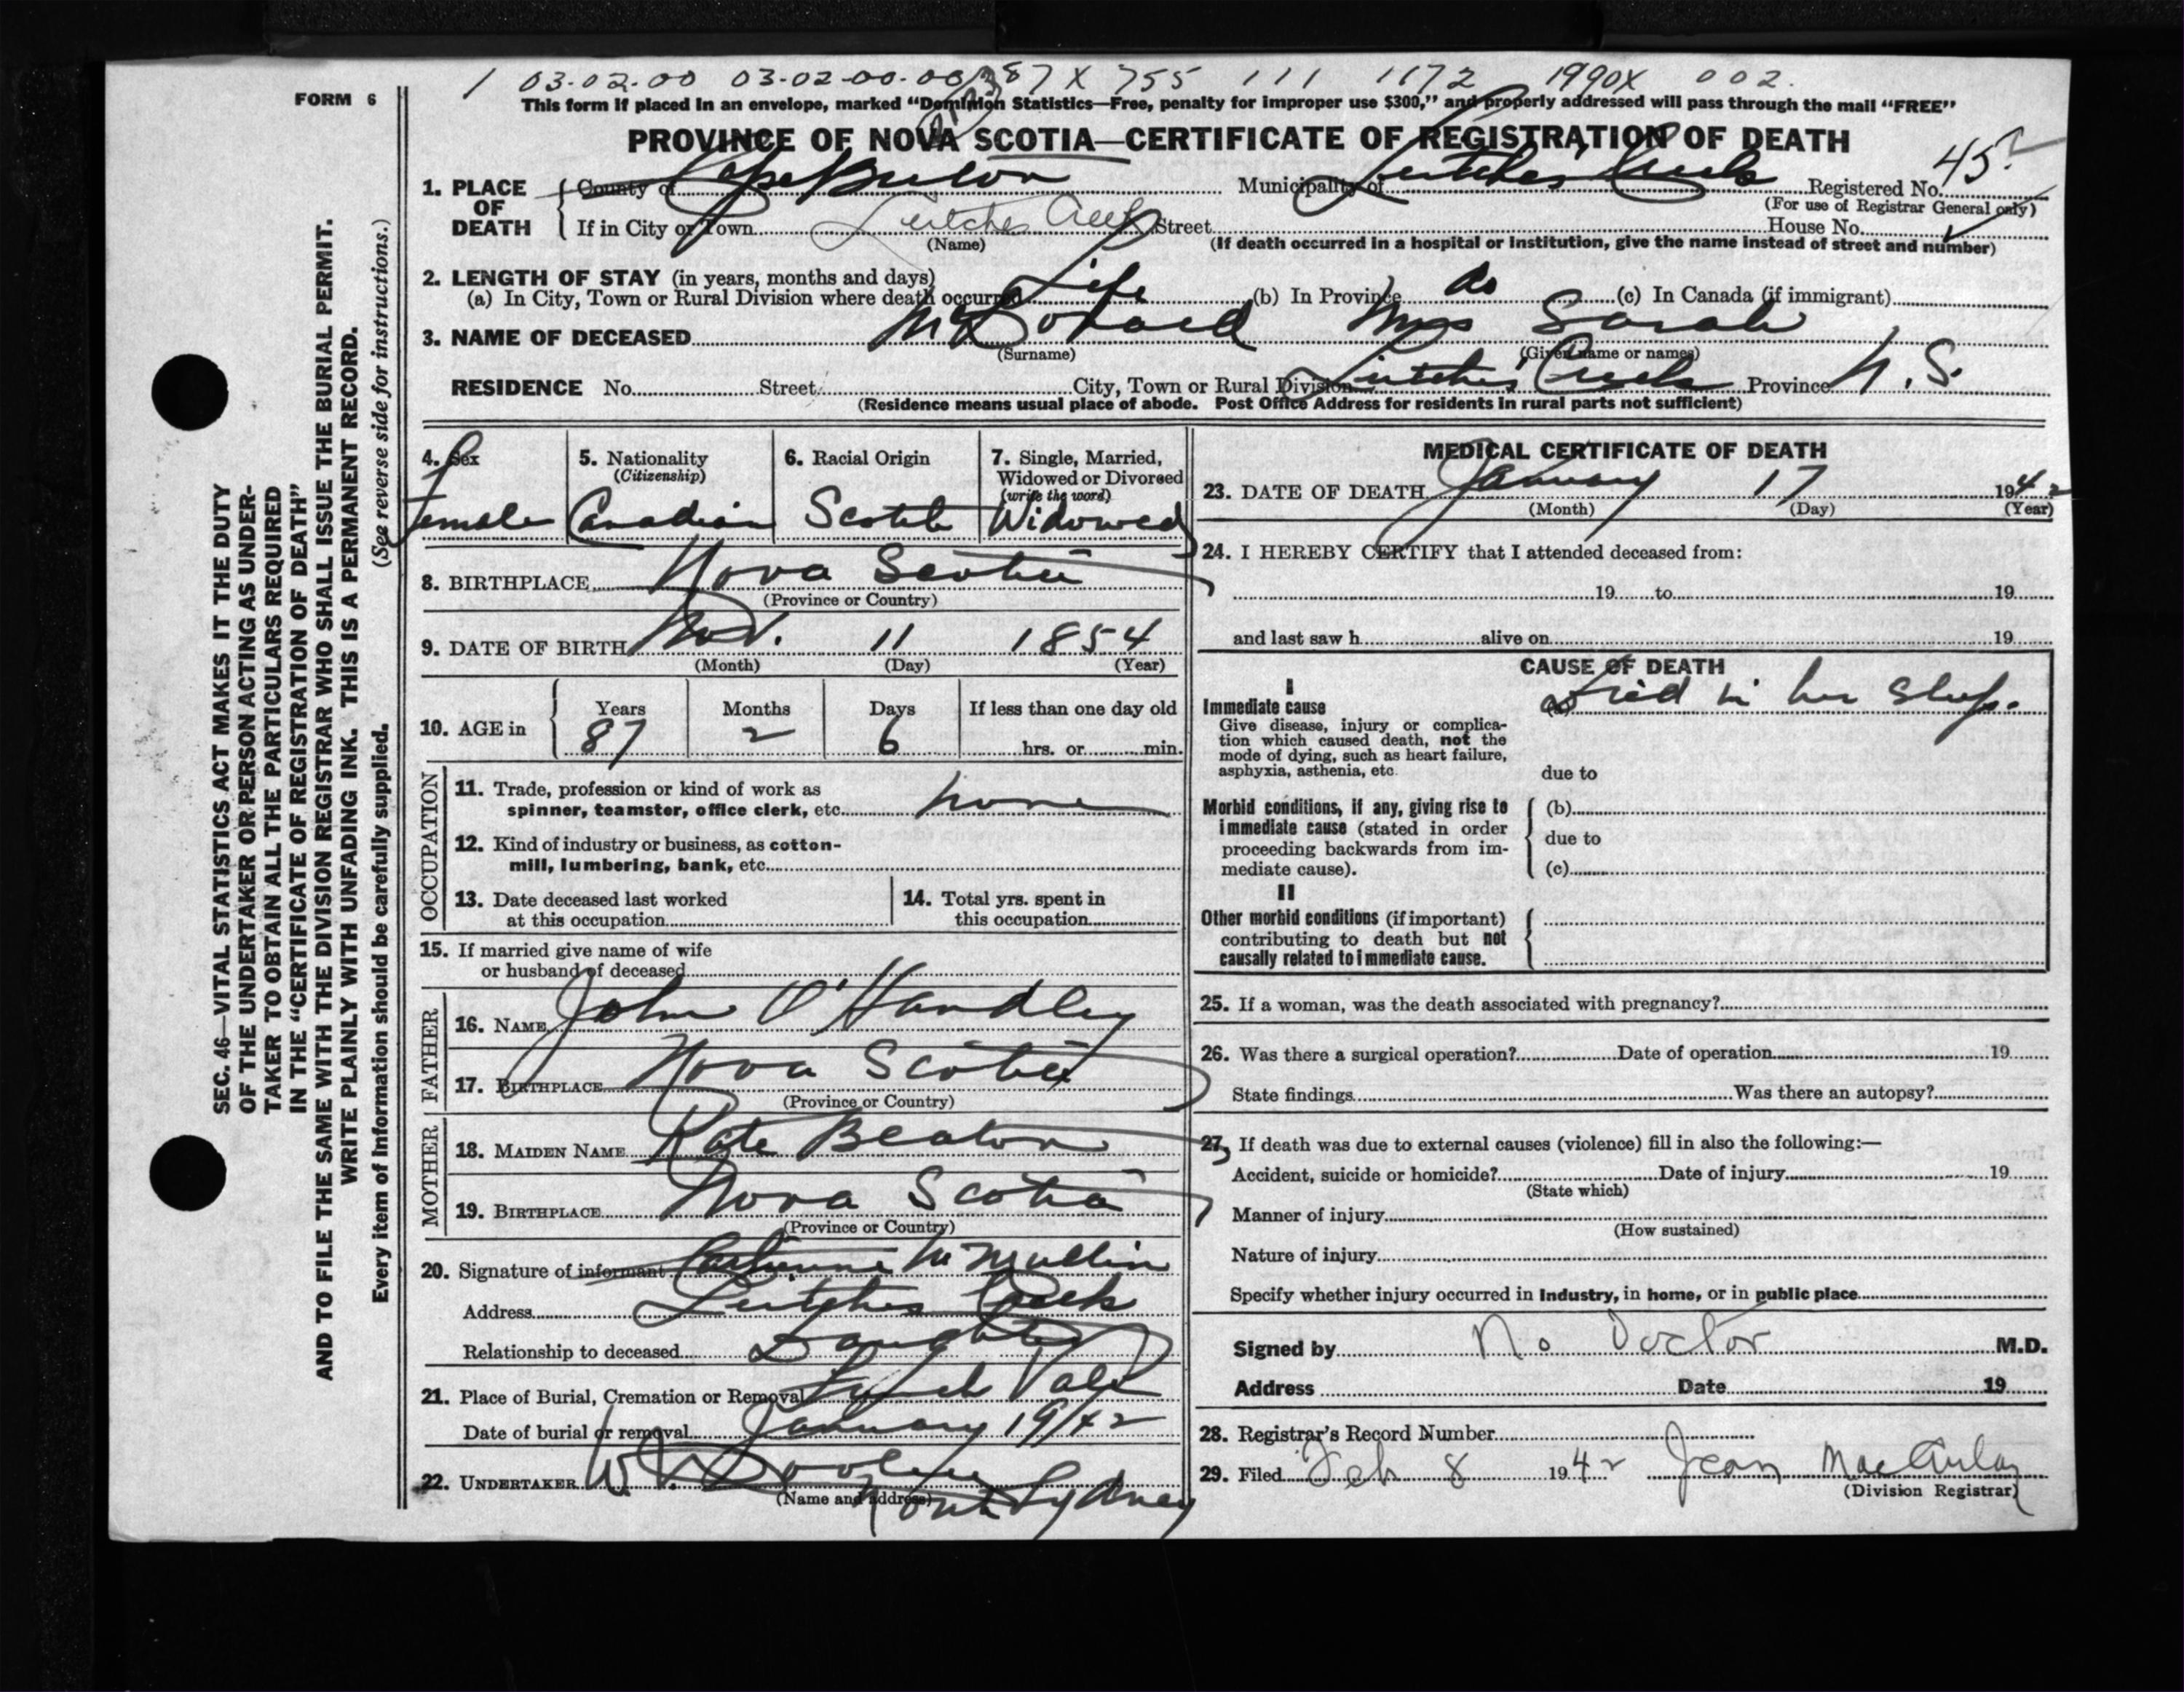 1 03-02-00 03-02-00-00 87 X 755 111 1172 1990X 002.
FORM 6
This form if placed in an envelope, marked “Dominion Statistics—Free, penalty for improper use $300,” and properly addressed will pass through the mail “FREE”
PROVINCE OF NOVA SCOTIA—CERTIFICATE OF REGISTRATION OF DEATH
1. PLACE OF DEATH County of Cape Breton Municipality of Leitches Creek Registered No. 45
(For use of Registrar General only)
If in City or Town Leitches Creek Street House No.
(Name) (If death occurred in a hospital or institution, give the name instead of street and number)
2. LENGTH OF STAY (in years, months and days)
(a) In City, Town or Rural Division where death occurred Life (b) In Province do (c) In Canada (if immigrant)
3. NAME OF DECEASED McDonald Mrs Sarah
(Surname) (Given name or names)
RESIDENCE No. Street City, Town or Rural Division Leitches Creek Province N.S.
(Residence means usual place of abode. Post Office Address for residents in rural parts not sufficient)
SEC. 46—VITAL STATISTICS ACT MAKES IT THE DUTY
OF THE UNDERTAKER OR PERSON ACTING AS UNDER-
TAKER TO OBTAIN ALL THE PARTICULARS REQUIRED
IN THE “CERTIFICATE OF REGISTRATION OF DEATH”
AND TO FILE THE SAME WITH THE DIVISION REGISTRAR WHO SHALL ISSUE THE BURIAL PERMIT.
WRITE PLAINLY WITH UNFADING INK. THIS IS A PERMANENT RECORD.
Every item of information should be carefully supplied. (See reverse side for instructions.)
4. Sex 5. Nationality 6. Racial Origin 7. Single, Married,
(Citizenship) Widowed or Divorced
(write the word)
Female Canadian Scotch Widowed
8. BIRTHPLACE Nova Scotia
(Province or Country)
9. DATE OF BIRTH Nov. 11 1854
(Month) (Day) (Year)
Years Months Days If less than one day old
10. AGE in 87 2 6 hrs. or min.
OCCUPATION
11. Trade, profession or kind of work as
spinner, teamster, office clerk, etc. none
12. Kind of industry or business, as cotton-
mill, lumbering, bank, etc.
13. Date deceased last worked
at this occupation
14. Total yrs. spent in
this occupation
15. If married give name of wife
or husband of deceased
FATHER
16. NAME John O'Handley
17. BIRTHPLACE Nova Scotia
(Province or Country)
MOTHER
18. MAIDEN NAME Kate Beaton
19. BIRTHPLACE Nova Scotia
(Province or Country)
20. Signature of informant Catherine McMullin
Address Leitches Creek
Relationship to deceased Daughter
21. Place of Burial, Cremation or Removal Vale
Date of burial or removal January 19/42
22. UNDERTAKER W.
(Name and address) North Sydney
MEDICAL CERTIFICATE OF DEATH
23. DATE OF DEATH January 17 1942
(Month) (Day) (Year)
24. I HEREBY CERTIFY that I attended deceased from:
19 to 19
and last saw h alive on 19
CAUSE OF DEATH
I
Immediate cause (a) Died in her sleep.
Give disease, injury or complica-
tion which caused death, not the
mode of dying, such as heart failure,
asphyxia, asthenia, etc. due to
Morbid conditions, if any, giving rise to (b)
immediate cause (stated in order due to
proceeding backwards from im-
mediate cause). (c)
II
Other morbid conditions (if important)
contributing to death but not
causally related to immediate cause.
25. If a woman, was the death associated with pregnancy?
26. Was there a surgical operation? Date of operation 19
State findings Was there an autopsy?
27. If death was due to external causes (violence) fill in also the following:—
Accident, suicide or homicide? Date of injury 19
(State which)
Manner of injury
(How sustained)
Nature of injury
Specify whether injury occurred in industry, in home, or in public place
Signed by No Doctor M.D.
Address Date 19
28. Registrar's Record Number
29. Filed Feb 8 1942 Jean MacAulay
(Division Registrar)